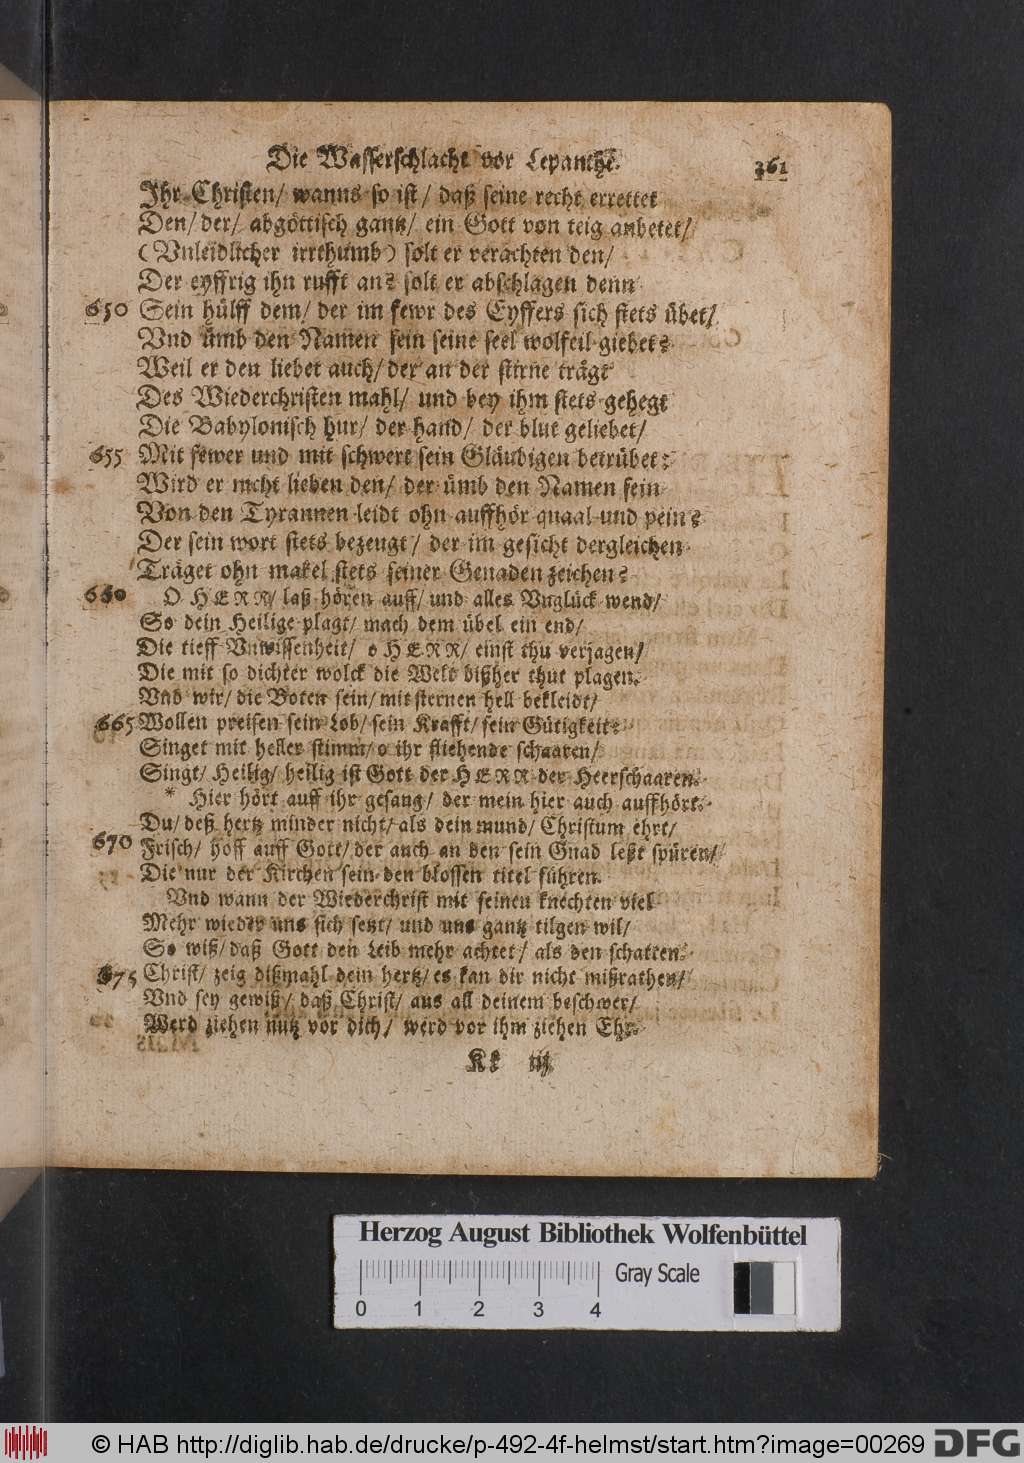 Die Wasserschlacht vor Lepantho. 361
Ihr Christen/ wanns so ist/ daß seine recht errettet
Den/ der/ abgöttisch gantz/ ein Gott von teig anbetet/
(Vnleidlicher irrthumb) solt er verachten den/
Der eyffrig ihn rufft an? solt er abschlagen denn
650 Sein hülff dem/ der im fewr des Eyffers sich stets übet/
Vnd ümb den Namen sein seine seel wolfeil giebet?
Weil er den liebet auch/ der an der stirne trägt
Des Wiederchristen mahl/ und bey ihm stets gehegt
Die Babylonisch hur/ der hand/ der blut geliebet/
655 Mit fewer und mit schwert sein Gläubigen betrübet:
Wird er nicht lieben den/ der ümb den Namen sein
Von den Tyrannen leidt ohn auffhör quaal und pein?
Der sein wort stets bezeugt/ der im gesicht dergleichen
Träget ohn makel stets seiner Genaden zeichen?
660 O HERR/ laß hören auff/ und alles Vnglück wend/
So dein Heilige plagt/ mach dem übel ein end/
Die tieff Vnwissenheit/ o HERR/ einst thu verjagen/
Die mit so dichter wolck die Welt bißher thut plagen.
Vnd wir/ die Boten sein/ mit sternen hell bekleidt/
665 Wollen preisen sein Lob/ sein Krafft/ sein Gütigkeit:
Singet mit heller stimm/ o ihr fliehende schaaren/
Singt/ Heilig/ heilig ist Gott der HERR der Heerschaaren.
* Hier hört auff ihr gesang/ der mein hier auch auffhört.
Du/ deß hertz minder nicht/ als dein mund/ Christum ehrt/
670 Frisch/ hoff auff Gott/ der auch an den sein Gnad leßt spüren/
Die nur der Kirchen sein den blossen titel führen.
Vnd wann der Wiederchrist mit seinen knechten viel
Mehr wieder uns sich setzt/ und uns gantz tilgen wil/
So wiß/ daß Gott den Leib mehr achtet/ als den schatten.
675 Christ/ zeig dißmahl dein hertz/ es kan dir nicht mißrathen/
Vnd sey gewiß/ daß Christ/ aus all deinem beschwer/
Werd ziehen nutz vor dich/ werd vor ihm ziehen Ehr.
Kk iij
Herzog August Bibliothek Wolfenbüttel
Gray Scale
0 1 2 3 4
© HAB http://diglib.hab.de/drucke/p-492-4f-helmst/start.htm?image=00269 DFG